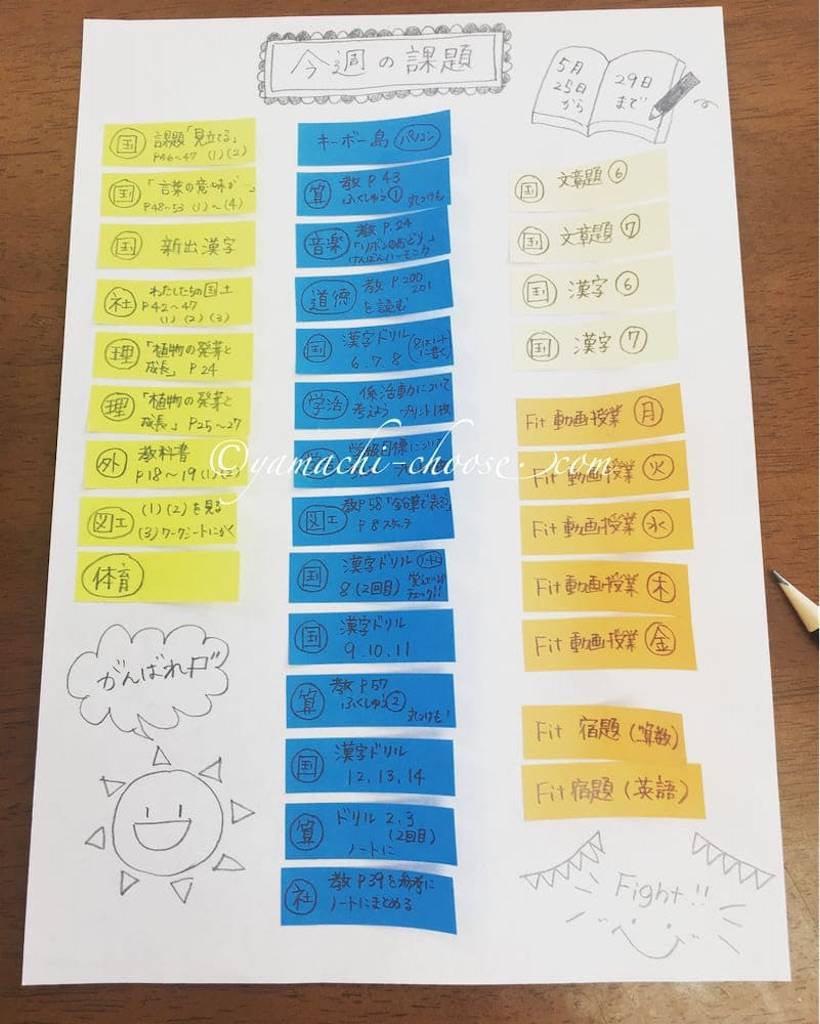 今週の課題
5月
25日
から
29日
まで
国 課題「見立てる」
P46~47 (1)(2)
国 「言葉の意味が…」
P48~53 (1)~(4)
国 新出漢字
社 わたしたちの国土
P42~47
(1)(2)(3)
理 「植物の発芽と
成長」 P24
理 「植物の発芽と
成長」 P25~27
外 教科書
P18~19(1)(2)
図工 (1)(2)を見る
(3)ワークシートにかく
体育
がんばれ
キーボー島 パソコン
算 教P43
ふくしゅう① 丸つけも
音楽 教P.24
「リボンのおどり」
けんばんハーモニカ
道徳 教P200
201
を読む
国 漢字ドリル
6.7.8
学活 係活動について
考えよう プリント1枚
学級目標について
図工 教P58
P8スケッチ
国 漢字ドリル ノート
8(2回目)
チェック!!
国 漢字ドリル
9.10.11
算 教P57
ふくしゅう② 丸つけも!
国 漢字ドリル
12.13.14
算 ドリル 2.3
(2回目)
ノートに
社 教P39を参考に
ノートにまとめる
国 文章題⑥
国 文章題⑦
国 漢字⑥
国 漢字⑦
Fit 動画授業 月
Fit 動画授業 火
Fit 動画授業 水
Fit 動画授業 木
Fit 動画授業 金
Fit 宿題(算数)
Fit 宿題(英語)
Fight!!
©yamachi-choose.com